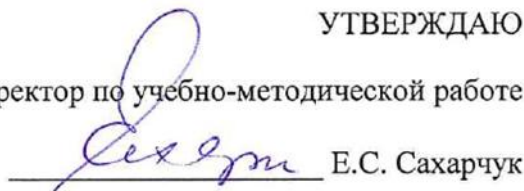 УТВЕРЖДАЮ
ректор по учебно-методической работе
Е.С. Сахарчук